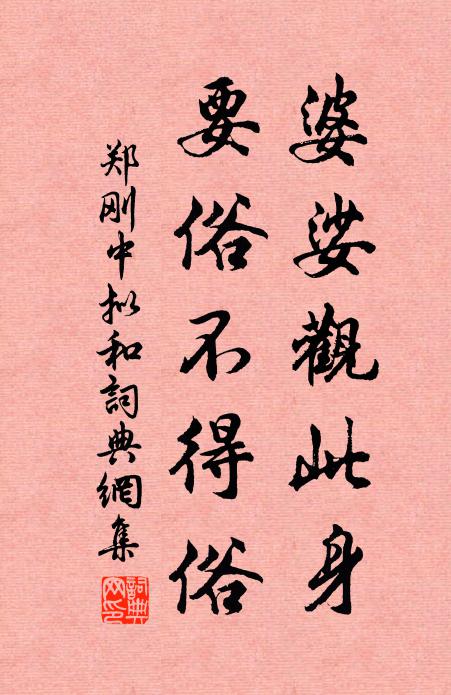 婆娑觀此身
要俗不得俗
郑刚中拟和詞典網集
詞典
网印